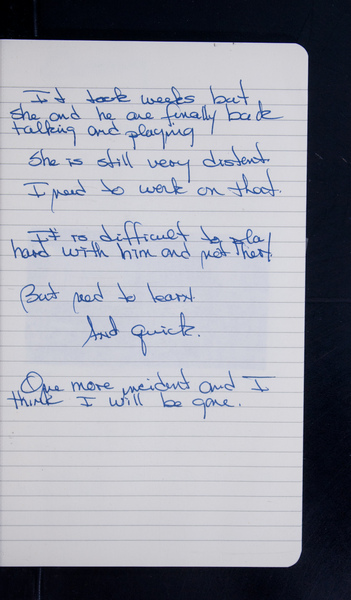 It took weeks but
she and he are finally back
talking and playing
She is still very distent.
I need to work on that.
It is difficult to play
hard with him and not her.
But need to learn.
And quick.
One more incident and I
think I will be gone.